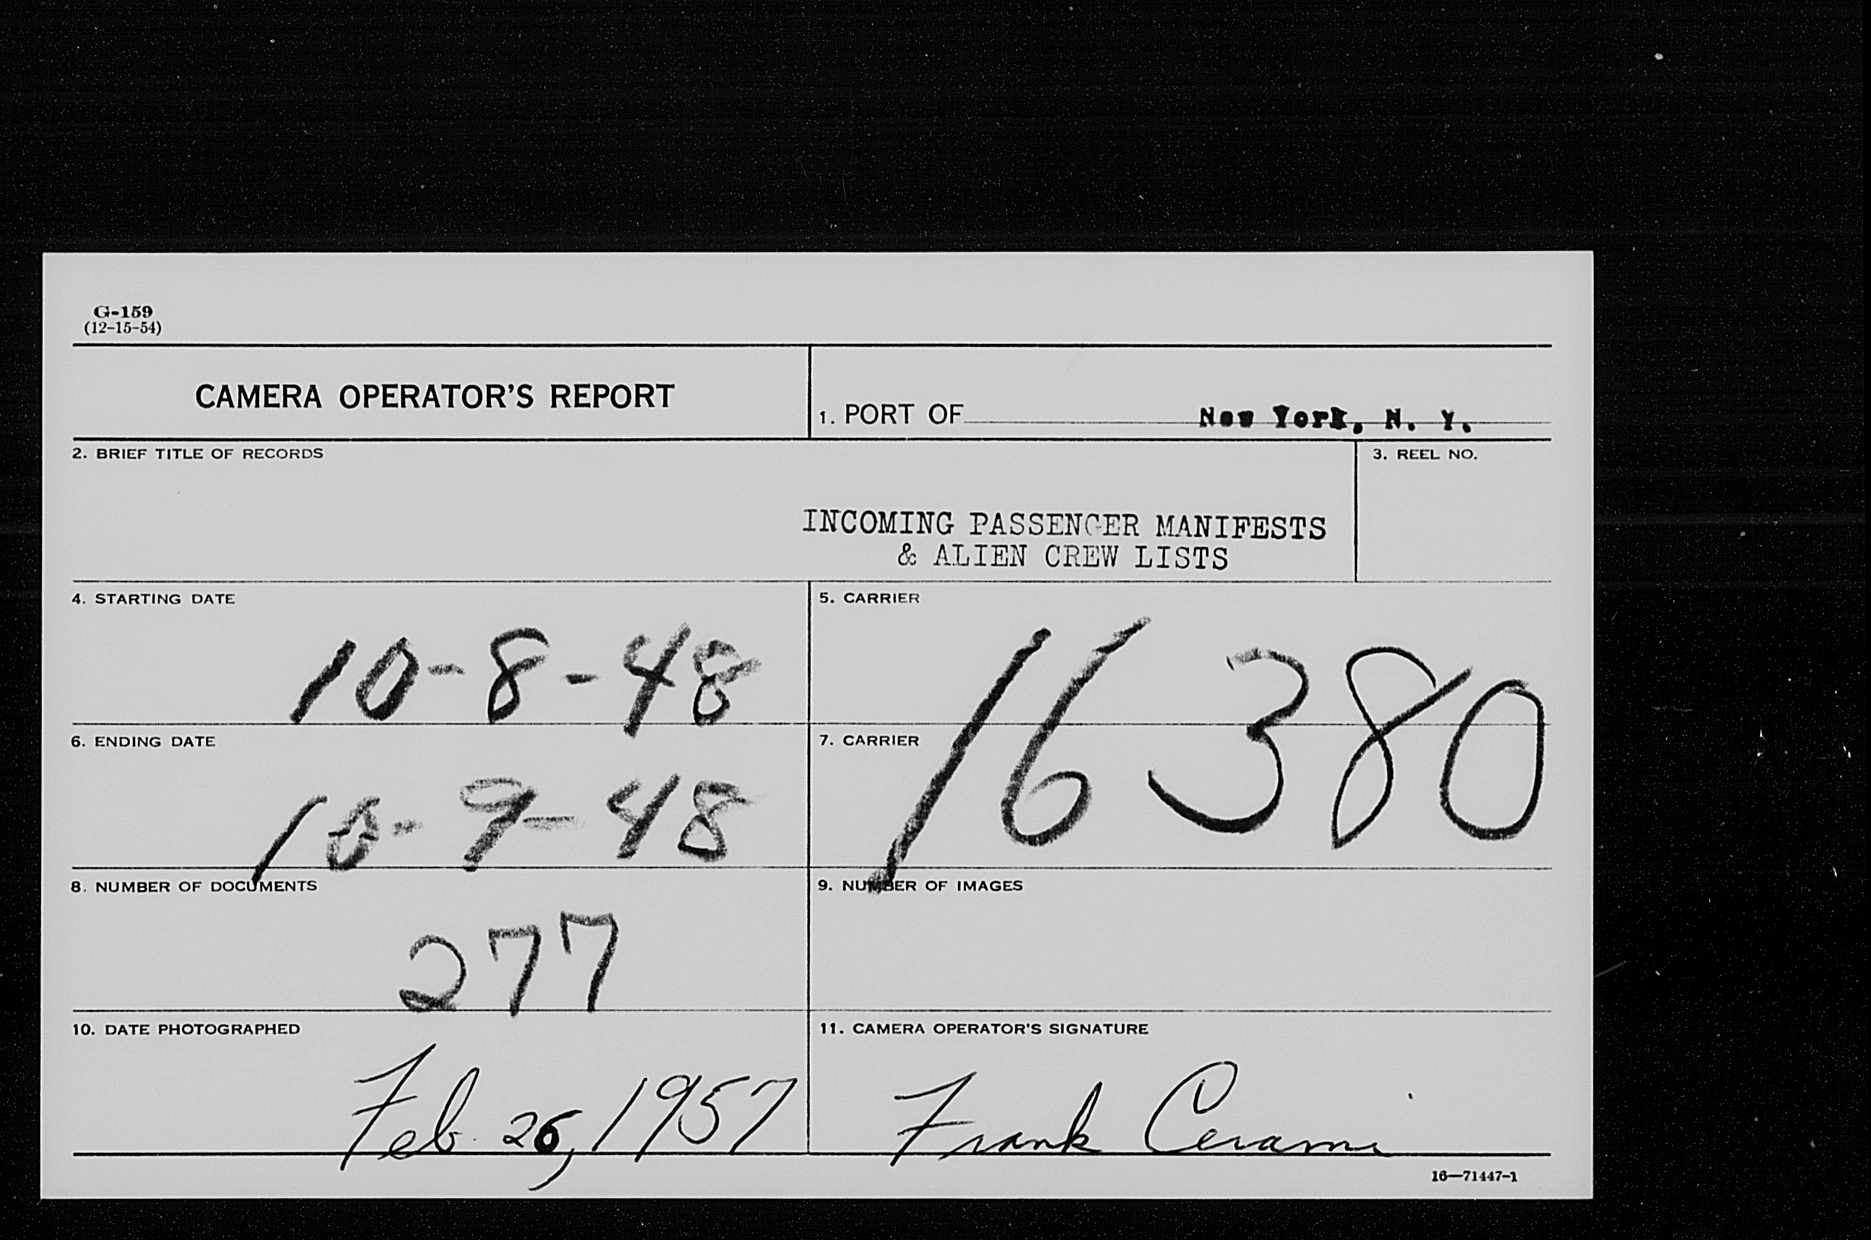 G-159
(12-15-54)
CAMERA OPERATOR'S REPORT
1. PORT OF New York, N. Y.
2. BRIEF TITLE OF RECORDS
3. REEL NO.
INCOMING PASSENGER MANIFESTS
& ALIEN CREW LISTS
4. STARTING DATE
10-8-48
5. CARRIER
16380
6. ENDING DATE
10-9-48
7. CARRIER
8. NUMBER OF DOCUMENTS
277
9. NUMBER OF IMAGES
10. DATE PHOTOGRAPHED
Feb. 26, 1957
11. CAMERA OPERATOR'S SIGNATURE
Frank Cerami
16—71447-1